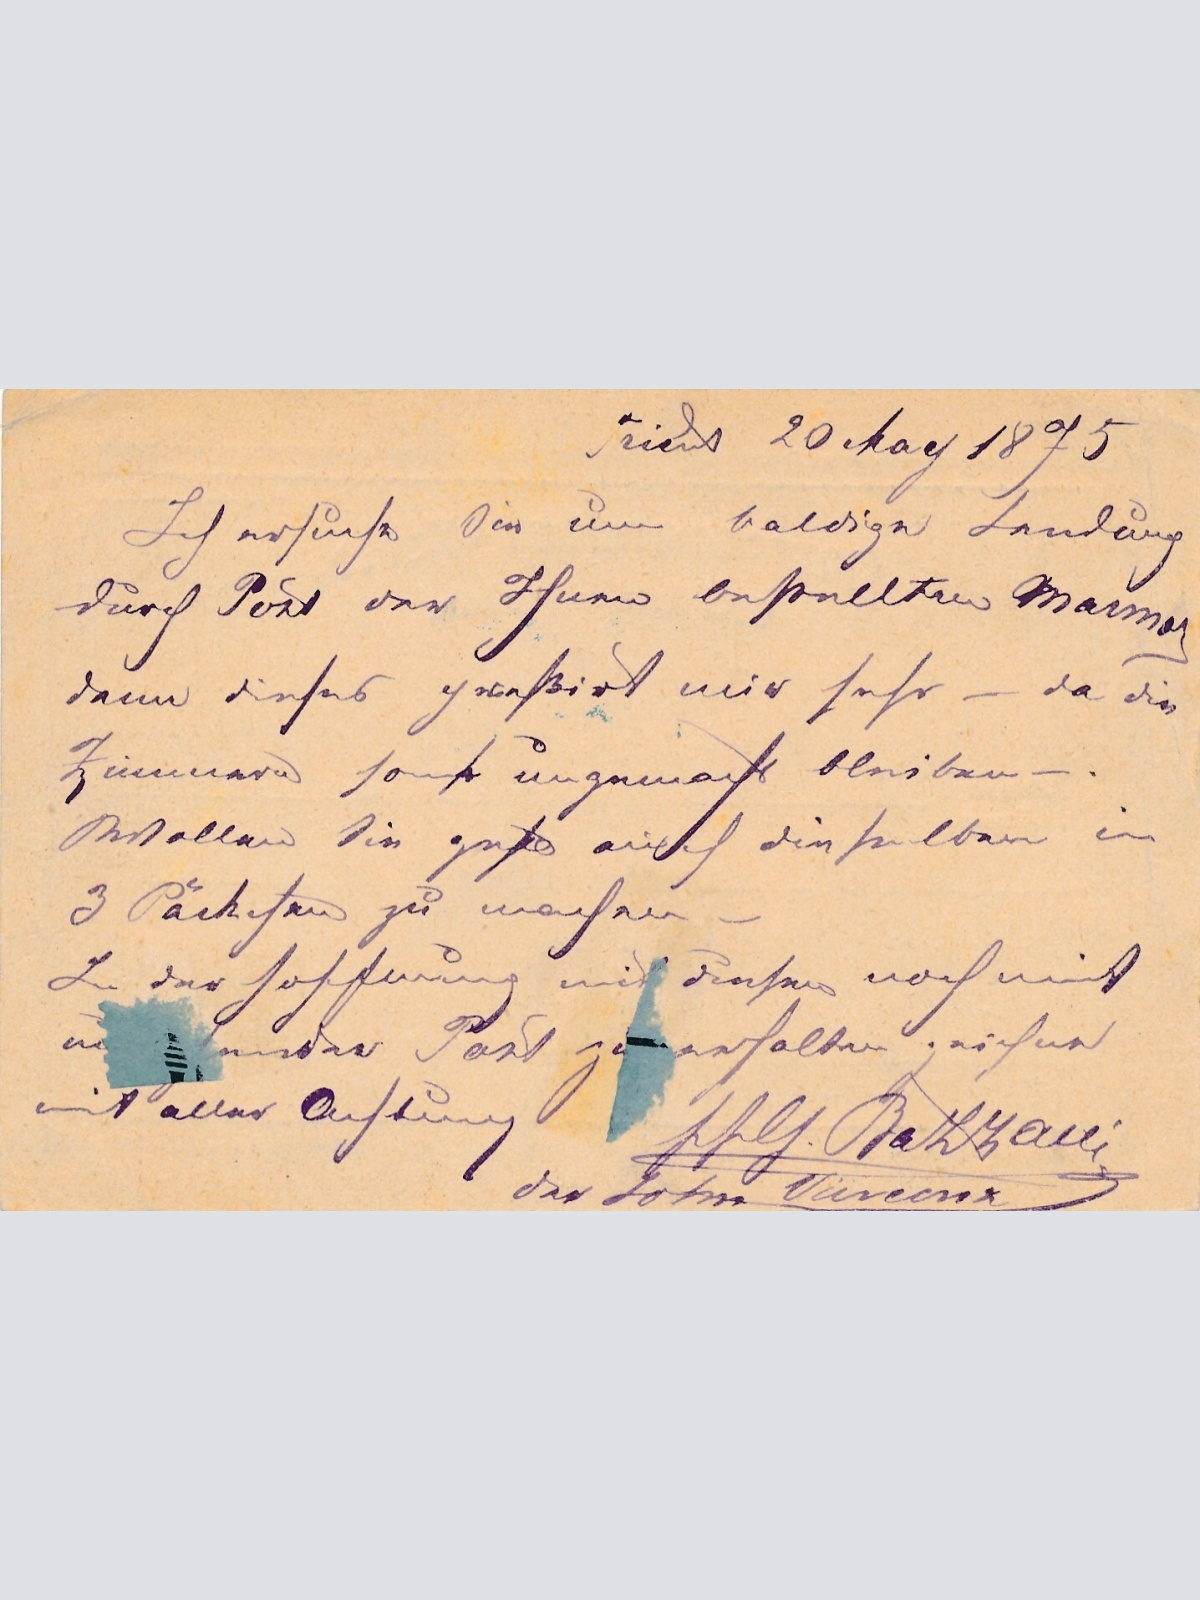 Trient 20 May 1875
Ich ersuche Sie um baldige Sendung
durch Post der Ihnen bestellten Marmor
denn dieses pressirt mir sehr – da die
Zimmern sonst ungemacht bleiben –.
Wollen Sie gefs auch dieselben in
3 Päckchen zu machen –
In der Hoffnung mit diesen noch mit
Post zu erhalten zeichne
mit aller Achtung
G. Bazzani
der Sohn